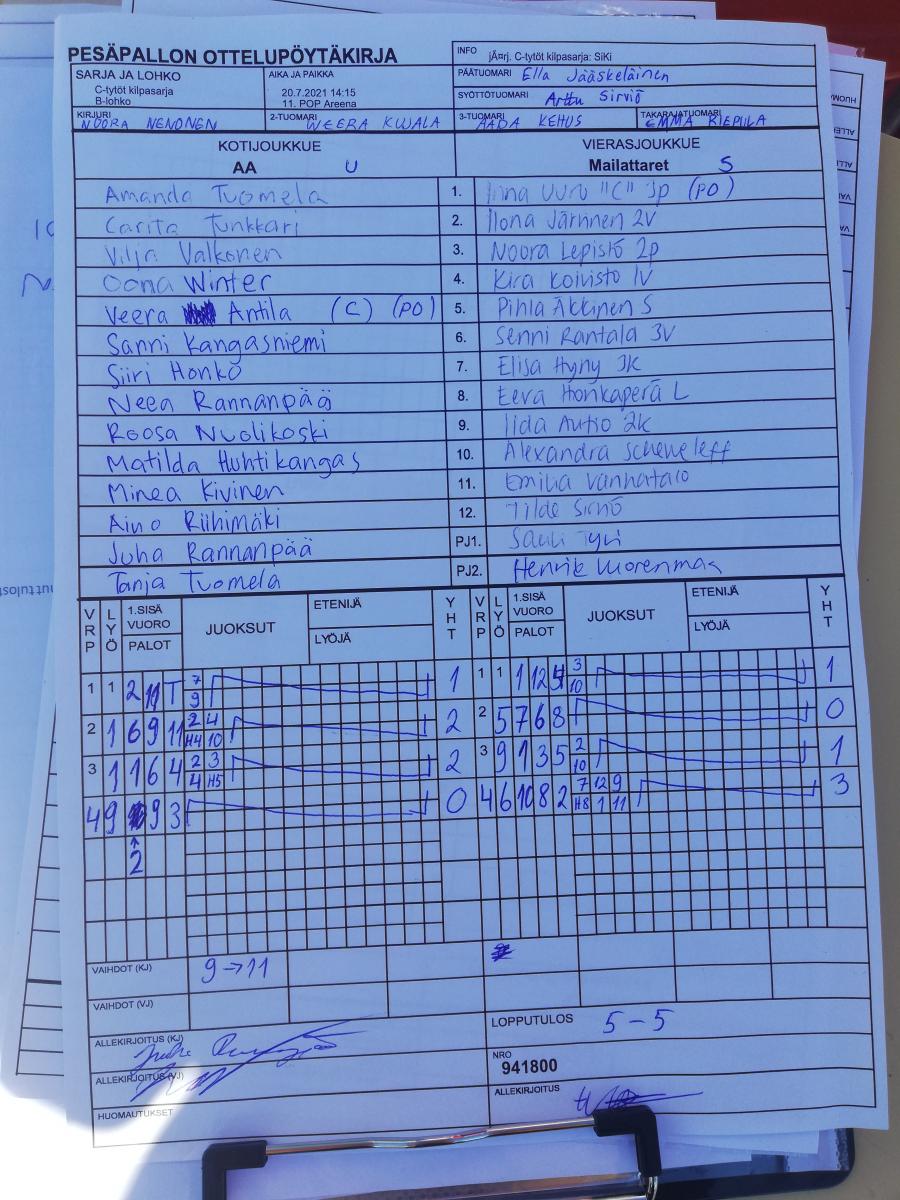 PESÄPALLON OTTELUPÖYTÄKIRJA
INFO jÃ¤rj. C-tytöt kilpasarja: SiKi
SARJA JA LOHKO
C-tytöt kilpasarja
B-lohko
AIKA JA PAIKKA
20.7.2021 14:15
11. POP Areena
PÄÄTUOMARI Ella Jääskeläinen
SYÖTTÖTUOMARI Arttu Sirviö
KIRJURI NOORA NENONEN
2-TUOMARI WEERA KUJALA
3-TUOMARI AADA KEHUS
TAKARAJATUOMARI EMMA
KOTIJOUKKUE
AA U
VIERASJOUKKUE
Mailattaret S
Amanda Tuomela 1. "C" 3p (PO)
Carita Tunkkari 2. Ilona Järvinen 2V
Vilja Valkonen 3. Noora Lepistö 2p
Oona Winter 4. Kira Koivisto 1V
Veera Antila (C) (PO) 5. Pihla Äkkinen S
Sanni Kangasniemi 6. Senni Rantala 3V
Siiri Honko 7. Elisa Hyny 3K
Neea Rannanpää 8. Eeva Honkaperä L
Roosa Nuolikoski 9. Iida Autio 2K
Matilda Huhtikangas 10. Alexandra
Minea Kivinen 11. Emilia Vannatalo
Aino Riihimäki 12. Tilde
Juha Rannanpää PJ1. Sauli
Tanja Tuomela PJ2. Henrik Vuorenmaa
VRP LYÖ 1.SISÄ VUORO PALOT JUOKSUT ETENIJÄ LYÖJÄ YHT VRP LYÖ 1.SISÄ VUORO PALOT JUOKSUT ETENIJÄ LYÖJÄ YHT
1 1 2 11 T 7 1 1 1 1 12 3 1
9 10
2 1 6 9 11 2 4 2 2 5 7 6 8 0
H4 10
3 1 1 6 4 2 3 2 3 9 1 3 5 2 1
4 H5 10
4 9 9 3 0 4 6 10 8 2 7 12 9 3
H8 1 11
2
VAIHDOT (KJ) 9→11
VAIHDOT (VJ)
ALLEKIRJOITUS (KJ)
LOPPUTULOS 5-5
ALLEKIRJOITUS (VJ)
NRO
941800
HUOMAUTUKSET
ALLEKIRJOITUS